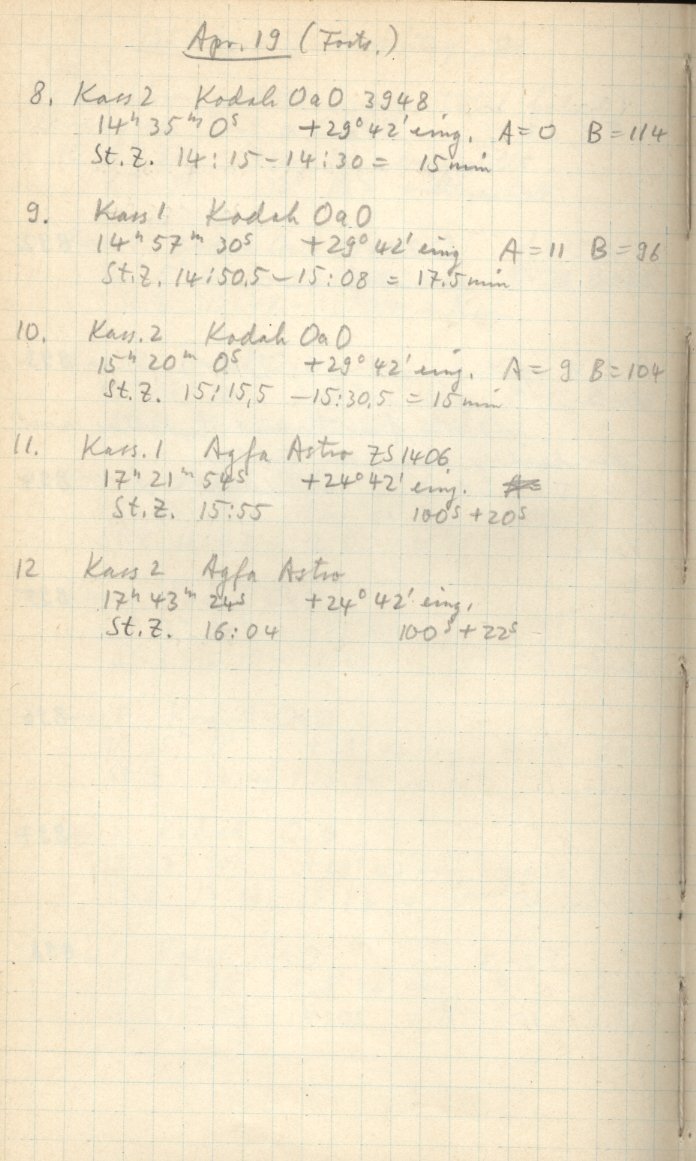 Apr. 19 (Forts.)
8. Kass 2 Kodak OaO 3948
14h 35m 0s +29° 42' eing. A=0 B=114
St.Z. 14:15–14:30 = 15 min
9. Kass 1 Kodak OaO
14h 57m 30s +29° 42' eing A=11 B=96
St.Z. 14:50.5–15:08 = 17.5 min
10. Kass. 2 Kodak OaO
15h 20m 0s +29° 42' eing. A=9 B=104
St.Z. 15:15,5 –15:30,5 = 15 min
11. Kass. 1 Agfa Astro ZS 1406
17h 21m 54s +24° 42' eing.
St.Z. 15:55 100s + 20s
12 Kass 2 Agfa Astro
17h 43m 24s +24° 42' eing.
St.Z. 16:04 100s + 22s